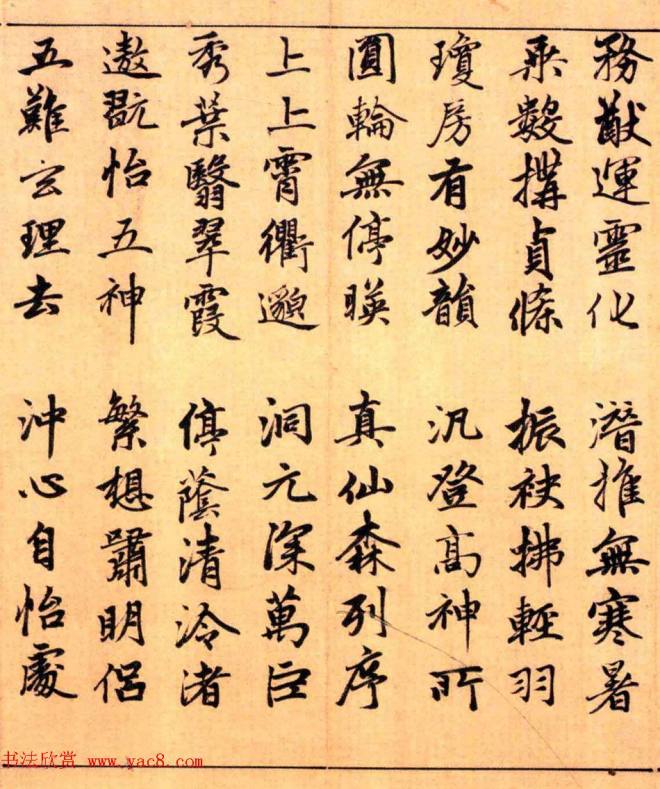 務猷運靈化 潛推無寒暑
乘數搆貞條 振袂拂輕羽
瓊房有妙韻 汎登高神所
圓輪無停暎 真仙森列序
上上霄衢邈 洞元深萬巨
秀葉翳翠霞 停蔭清泠渚
遨翫怡五神 繁想嘯明侶
五難玄理去 沖心自怡處
书法欣赏 www.yac8.com